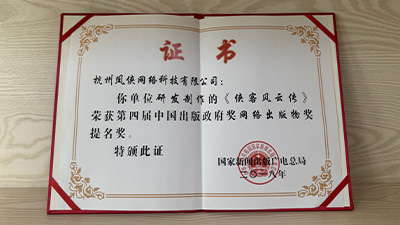 证书
杭州凤侠网络科技有限公司：
你单位研发制作的《侠客风云传》
荣获第四届中国出版政府奖网络出版物奖
提名奖。
特颁此证
国家新闻出版广电总局
二〇一八年